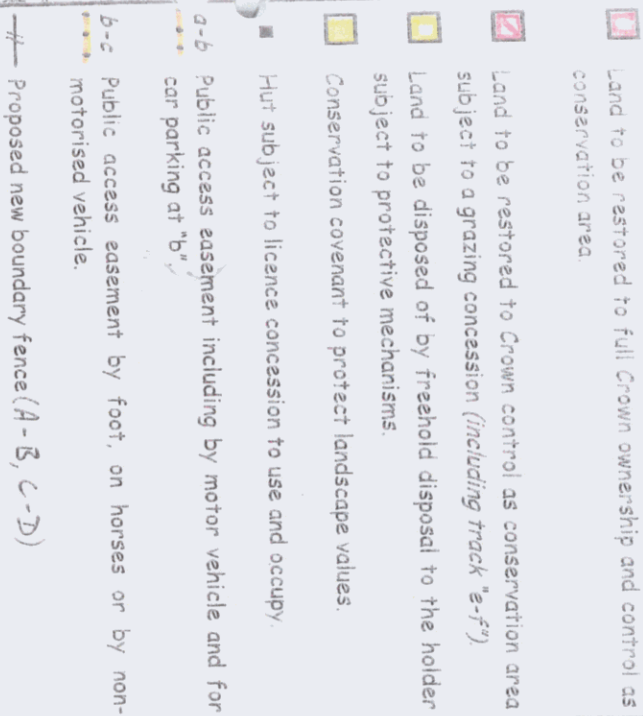 Land to be restored to full Crown ownership and control as
conservation area.
Land to be restored to Crown control as conservation area
subject to a grazing concession (including track "e-f").
Land to be disposed of by freehold disposal to the holder
subject to protective mechanisms.
Conservation covenant to protect landscape values.
Hut subject to licence concession to use and occupy.
a-b Public access easement including by motor vehicle and for
car parking at "b"
b-c Public access easement by foot, on horses or by non-
motorised vehicle.
Proposed new boundary fence (A - B, C - D)